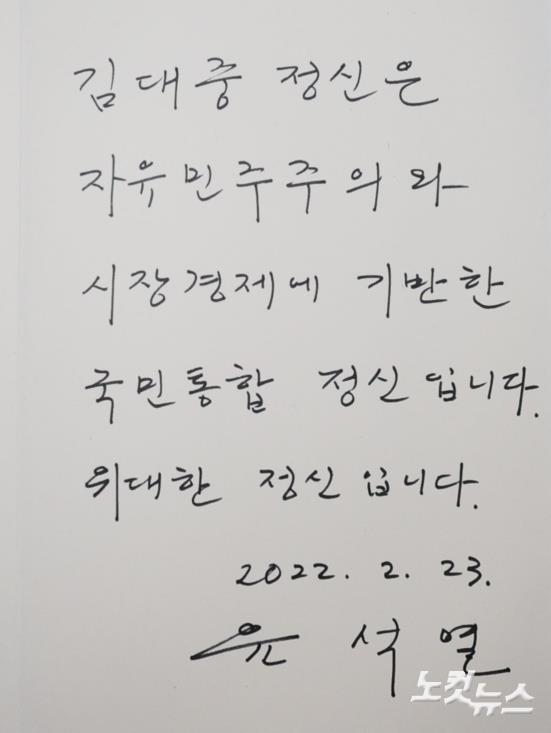 김대중 정신은
자유민주주의와
시장경제에 기반한
국민통합 정신입니다.
위대한 정신입니다.
2022. 2. 23.
윤석열
노컷뉴스